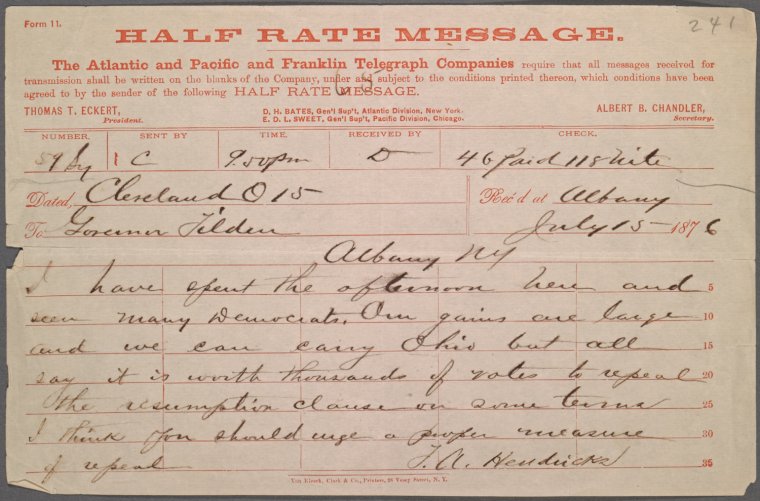 Form 11.
241
HALF RATE MESSAGE.
The Atlantic and Pacific and Franklin Telegraph Companies require that all messages received for
transmission shall be written on the blanks of the Company, under and subject to the conditions printed thereon, which conditions have been
agreed to by the sender of the following HALF RATE MESSAGE.
THOMAS T. ECKERT,
President.
D. H. BATES, Gen'l Sup't, Atlantic Division, New York.
E. D. L. SWEET, Gen'l Sup't, Pacific Division, Chicago.
ALBERT B. CHANDLER,
Secretary.
NUMBER. SENT BY TIME. RECEIVED BY CHECK.
C 9.50pm D 46 Paid 118 Nite
Dated, Cleveland O 15 Rec'd at Albany
To Governor Tilden July 15 1876
Albany NY
I have spent the afternoon here and 5
seen many Democrats. Our gains are large 10
and we can carry Ohio but all 15
say it is worth thousands of votes to repeal 20
the resumption clause on some terms 25
I think you should urge a proper measure 30
of repeal T. A. Hendricks 35
Van Kleeck, Clark & Co., Printers, Vesey Street, N. Y.